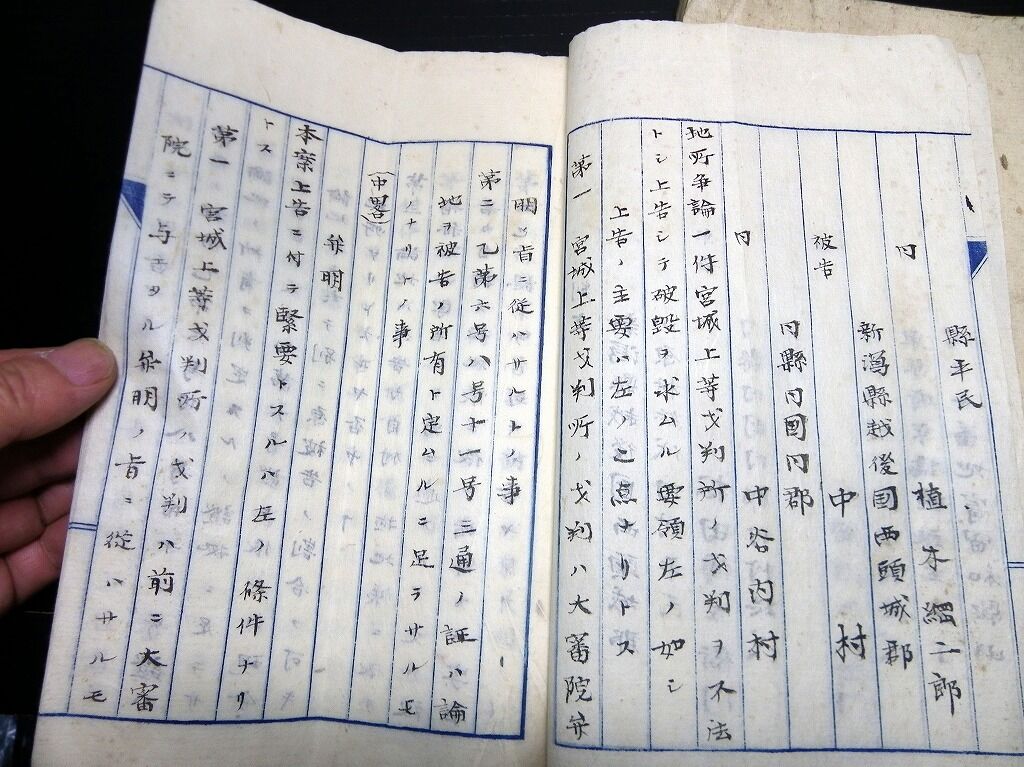 縣平民
同　植木綱二郎
新潟縣越後國西頸城郡
被告　中村
同縣同國同郡
同　中谷内村
地所争論一件宮城上等裁判所ノ裁判ヲ不法
トシ上告シテ破毀ヲ求ムル要領左ノ如シ
上告ノ主要ハ左ノ点ナリトス
第一　宮城上等裁判所ノ裁判ハ大審院弁
明ノ旨ニ従ハサルトノ事
第二　乙第六号八号十一号三通ノ証ハ論
地ヲ被告ノ所有ト定ムルニ足ラサルモ
ノナリトノ事
（中畧）
弁明
本案上告ニ付テ緊要トスルハ左ノ條件ナリ
トス
第一　宮城上等裁判所ノ裁判ハ前ニ大審
院ニテ与ヘタル弁明ノ旨ニ従ハサルモ